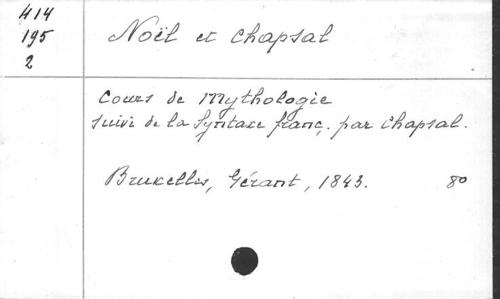 414
195
2
Noël et Chapsal
Cours de Mythologie
suivi de la Syntaxe franç. par Chapsal.
Bruxelles, Gérant, 1843. 8o